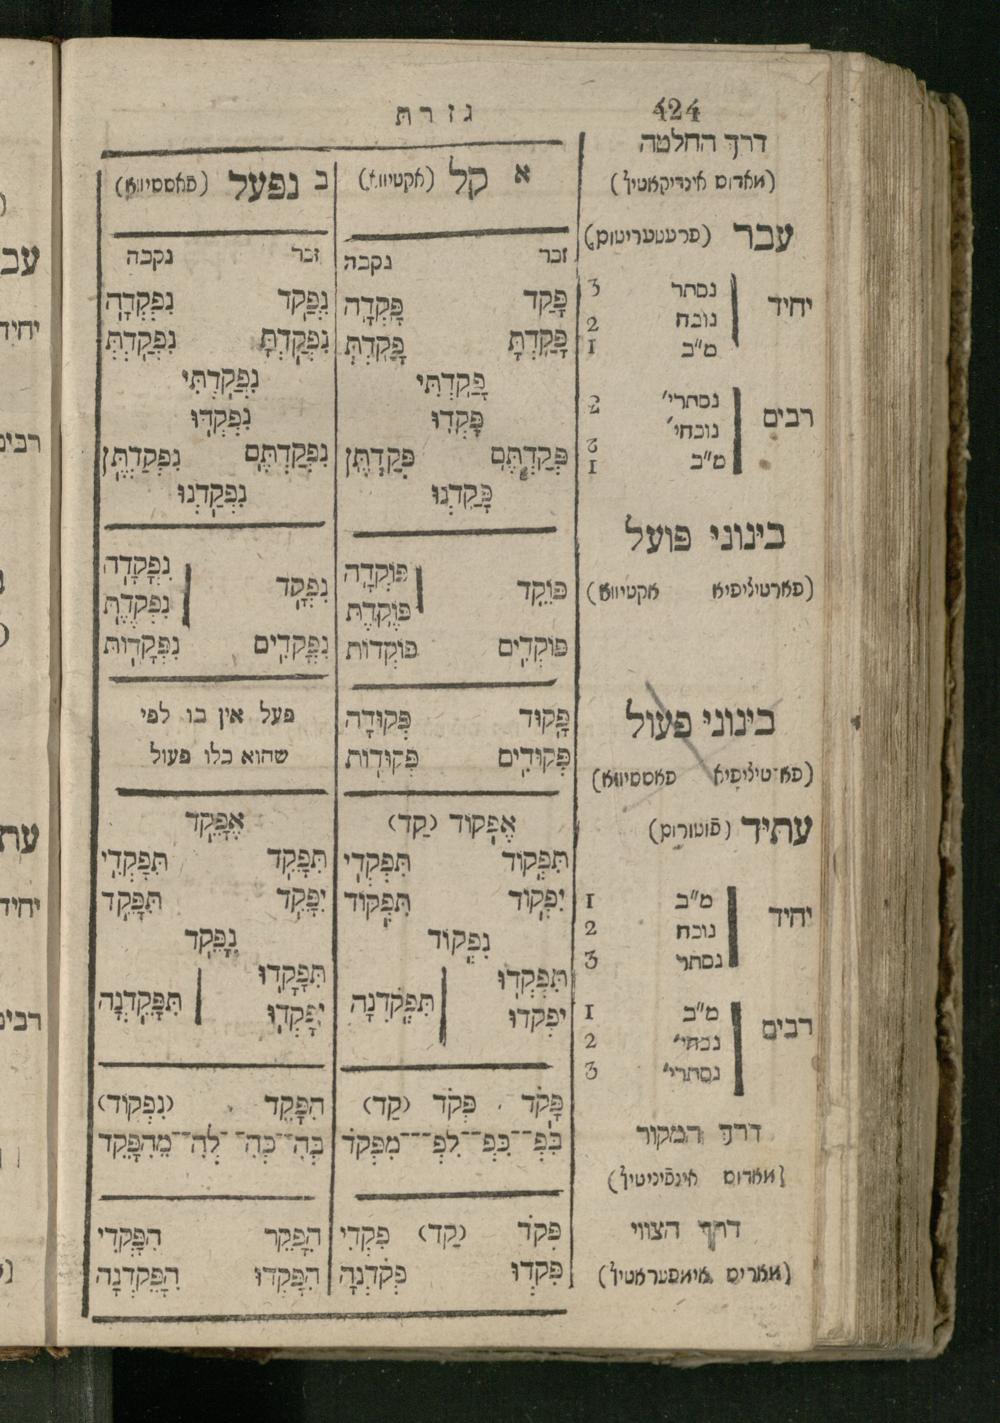 424
גזרת
דרך החלטה
(מאדוס אינדיקאטיף)
עבר (פרעטעריטום)
יחיד
נסתר 3
נוכח 2
מ"ב 1
רבים
נסתרי' 2
נוכחי' 3
מ"ב 1
בינוני פועל
(פארטיליפיא אקטיווא)
בינוני פעול
(פא־טיליפיא פאססיווא)
עתיד (פֿוטורום)
יחיד
מ"ב 1
נוכח 2
נסתר 3
רבים
מ"ב 1
נכחי' 2
נסתרי' 3
דרך המקור
(מאדוס אינפֿיניטיף)
דרך הצווי
(מאדיס אימפעראטיף)
א קל (אקטיווא)
זכר נקבה
פָּקַד פָּקְדָה
פָּקַדְתָּ פָּקַדְתְּ
פָּקַדְתִּי
פָּקְדוּ
פְּקַדְתֶּם פְּקַדְתֶּן
פָּקַדְנוּ
פּוֹקֵד פּוֹקְדָה
פּוֹקֶדֶת
פּוֹקְדִים פּוֹקְדוֹת
פָּקוּד פְּקוּדָה
פְּקוּדִים פְּקוּדוֹת
אֶפְקוֹד (קַד)
תִּפְקוֹד תִּפְקְדִי
יִפְקוֹד תִּפְקוֹד
נִפְקוֹד
תִּפְקְדוּ תִּפְקֹדְנָה
יִפְקְדוּ
פָּקֹד פְּקֹד (קַד)
בִּפְ־־כִּפְ־־לִפְ־־־מִפְּקֹד
פְּקֹד (קַד) פִּקְדִי
פִּקְדוּ פְּקֹדְנָה
ב נפעל (פֿאססיווא)
זכר נקבה
נִפְקַד נִפְקְדָה
נִפְקַדְתָּ נִפְקַדְתְּ
נִפְקַדְתִּי
נִפְקְדוּ
נִפְקַדְתֶּם נִפְקַדְתֶּן
נִפְקַדְנוּ
נִפְקָד נִפְקָדָה
נִפְקֶדֶת
נִפְקָדִים נִפְקָדוֹת
פעל אין בו לפי
שהוא כלו פעול
אֶפָּקֵד
תִּפָּקֵד תִּפָּקְדִי
יִפָּקֵד תִּפָּקֵד
נִפָּקֵד
תִּפָּקְדוּ תִּפָּקֵדְנָה
יִפָּקְדוּ
הִפָּקֵד (נִפְקוֹד)
בְּהִ־־כְּהִ־־לְהִ־־מֵהִפָּקֵד
הִפָּקֵד הִפָּקְדִי
הִפָּקְדוּ הִפָּקֵדְנָה